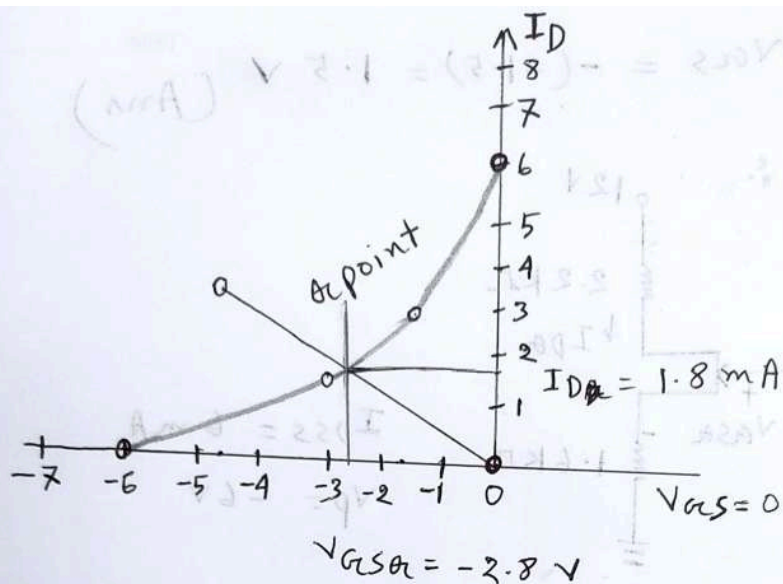 I_D
8
7
6
5
4
3
2
1
Q point
I_DQ = 1.8 mA
-7 -6 -5 -4 -3 -2 -1 0
V_GS = 0
V_GSQ = -2.8 V